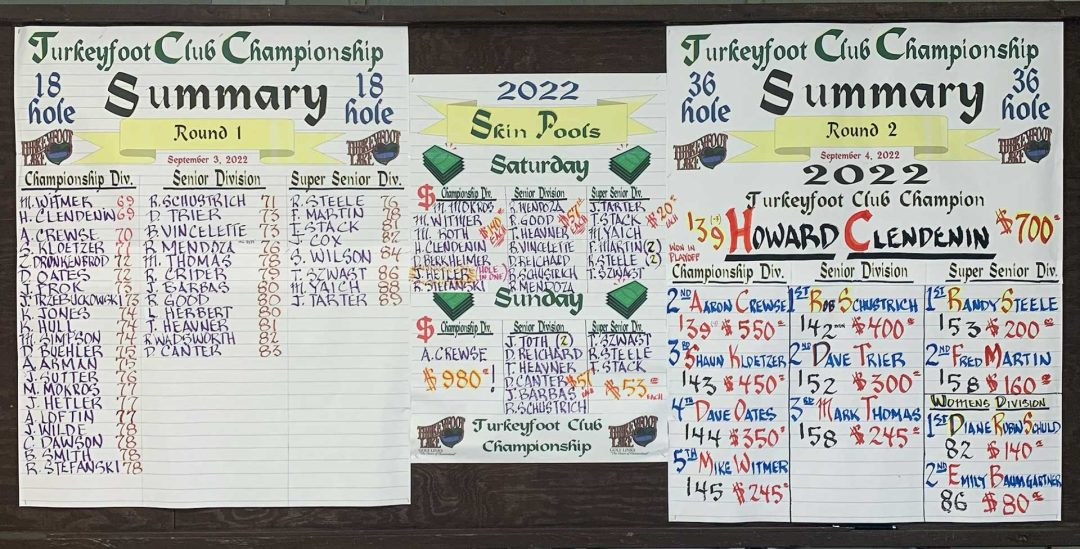 Turkeyfoot Club Championship
18 hole
Summary
18 hole
TURKEYFOOT LAKE
Round 1
TURKEYFOOT LAKE
September 3, 2022
Championship Div.
M. WITMER 69
H. CLENDENIN 69
A. CREWSE 70
S. KLOETZER 71
C. DRONKENBROD 72
D. OATES 72
J. PROK 73
J. TRZEBUCKOWSKI 73
K. JONES 74
K. HULL 74
M. SIMPSON 74
D. BUEHLER 75
A. ARMAN 75
J. SUTTER 76
M. MOKROS 77
J. HETLER 77
A. LOFTIN 77
J. WILDE 78
C. DAWSON 78
B. SMITH 78
R. STEFANSKI 78
Senior Division
R. SCHUSTRICH 71
D. TRIER 73
B. VINCELETTE 73
R. MENDOZA 76
M. THOMAS 78
R. CRIDER 79
J. BARBAS 80
R. GOOD 80
L. HERBERT 80
T. HEAVNER 81
R. WADSWORTH 82
D. CANTER 83
Super Senior Div.
R. STEELE 76
F. MARTIN 78
T. STACK 81
J. COX 82
S. WILSON 84
T. SZWAST 86
M. YAICH 88
J. TARTER 89
2022
Skin Pools
Saturday
$ Championship Div.
M. MOKROS
M. WITMER
M. ROTH
H. CLENDENIN
D. BERKHEIMER
J. HETLER (HOLE IN ONE)
R. STEFANSKI
$140 EACH
Senior Division
R. MENDOZA
R. GOOD
T. HEAVNER
B. VINCELETTE
D. REICHARD
R. SCHUSTRICH
R. MENDOZA
$57 EACH
Super Senior Div.
J. TARTER
T. STACK
M. YAICH
F. MARTIN (2)
R. STEELE (2)
T. SZWAST
$20 EACH
Sunday
$ Championship Div.
A. CREWSE
$980!
Senior Division
J. TOTH (2)
D. REICHARD
T. HEAVNER
D. CANTER
J. BARBAS
R. SCHUSTRICH
$57 EACH
Super Senior Div.
T. SZWAST
R. STEELE
T. STACK
$53 EACH
Turkeyfoot Club
Championship
Turkeyfoot Club Championship
36 hole
Summary
36 hole
TURKEYFOOT LAKE
Round 2
TURKEYFOOT LAKE
September 4, 2022
2022
Turkeyfoot Club Champion
139 HOWARD CLENDENIN $700
WON IN PLAYOFF
Championship Div.
2ND AARON CREWSE
139 $550
3RD SHAUN KLOETZER
143 $450
4TH DAVE OATES
144 $350
5TH MIKE WITMER
145 $245
Senior Division
1ST ROB SCHUSTRICH
142 $400
2ND DAVE TRIER
152 $300
3RD MARK THOMAS
158 $245
Super Senior Div.
1ST RANDY STEELE
153 $200
2ND FRED MARTIN
158 $160
WOMENS DIVISION
1ST DIANE ROBINSCHULD
82 $140
2ND EMILY BAUMGARTNER
86 $80